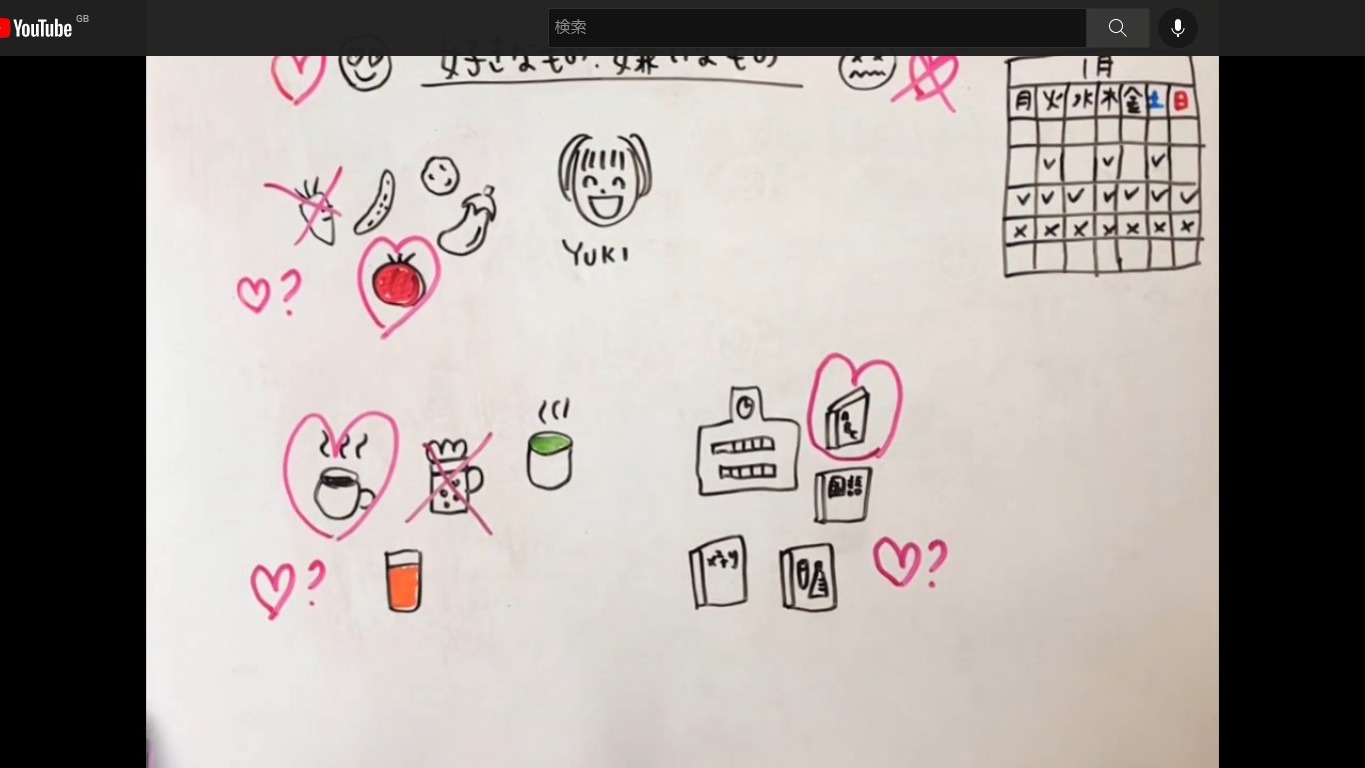 YouTube GB
検索
好きなもの、嫌いなもの
1月
月 火 水 木 金 土 日
YUKI
?
ABC
国語
?
x²+y
?